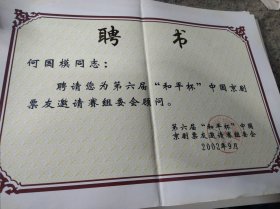 聘书
何国模同志：
聘请您为第六届“和平杯”中国京剧
票友邀请赛组委会顾问。
第六届“和平杯”中国
京剧票友邀请赛组委会
2002年9月